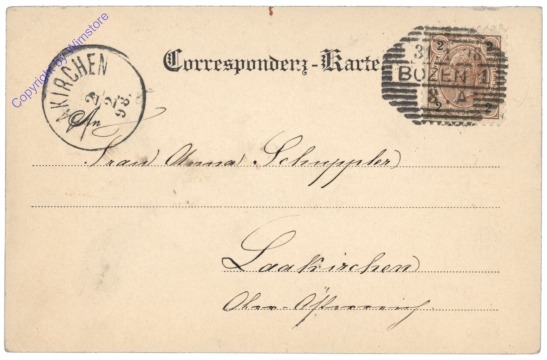 Copyright by Wimstore
AAKIRCHEN
2/2
98
Correspondenz-Karte
2 2
BOZEN 1
8 A
2 2
An
Frau Anna Schuppler
Laakirchen
Ober-Österreich